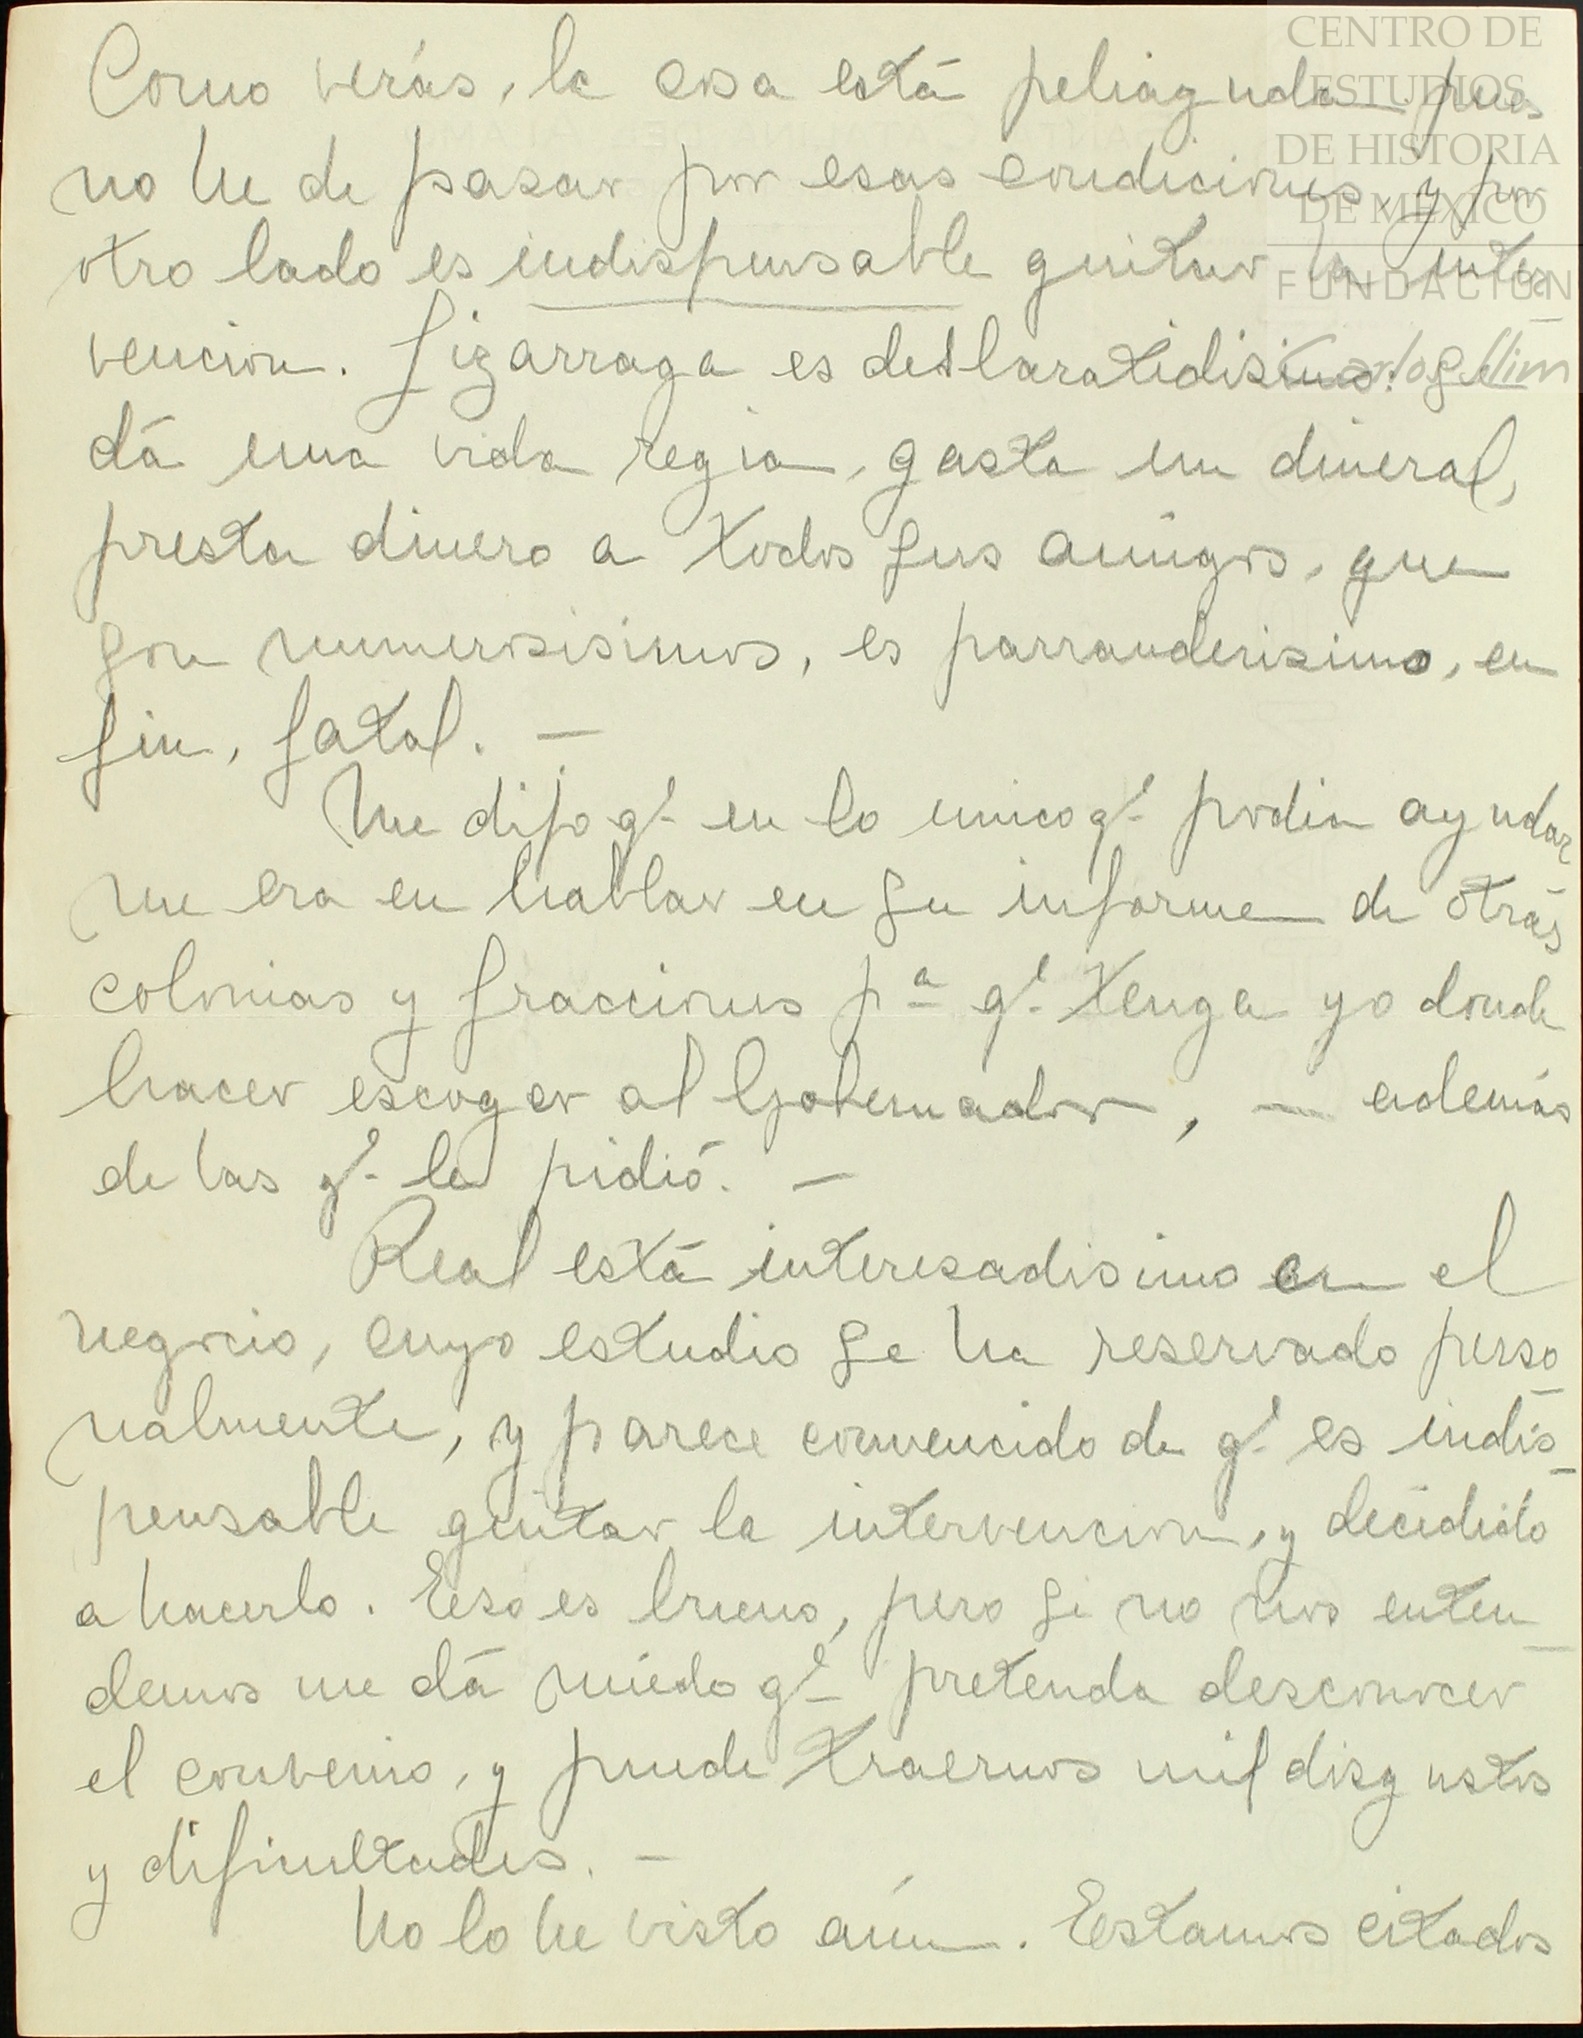 CENTRO DE
ESTUDIOS
DE HISTORIA
DE MÉXICO
FUNDACIÓN
Carlos Slim
Como verás, la cosa está peliaguda pues
no he de pasar por esas condiciones, y por
otro lado es indispensable quitar la inter
vencion. Lizarraga es desbaratidisimo: se
dá una vida regia, gasta un dineral,
presta dinero a todos sus amigos, que
son numerosisimos, es parranderisimo, en
fin, fatal. —
Me dijo q! en lo unico q! podia ayudar
me era en hablar en su informe de otras
colonias y fracciones pª q! tenga yo donde
hacer escoger al Gobernador, — además
de las q! le pidió. —
Real está interesadisimo en el
negocio, cuyo estudio se ha reservado perso
nalmente, y parece convencido de q! es indis
pensable quitar la intervencion, y decidido
a hacerlo. Eso es bueno, pero si no nos enten
demos me dá miedo q! pretenda desconocer
el convenio, y puede traernos mil disgustos
y dificultades. —
No lo he visto aún. Estamos citados